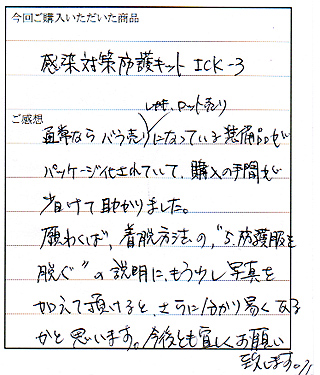 今回ご購入いただいた商品
感染対策防護キット ICK-3
ご感想
しかも、ロット売り
通常なら バラ売りになっている装備品が
パッケージ化されていて、購入の手間が
省けて助かりました。
願わくば、着脱方法の、"5.防護服を
脱ぐ"の説明に、もう少し写真を
加えて頂けると、さらに分かり易くなる
かと思います。今後とも宜しくお願い
致します。